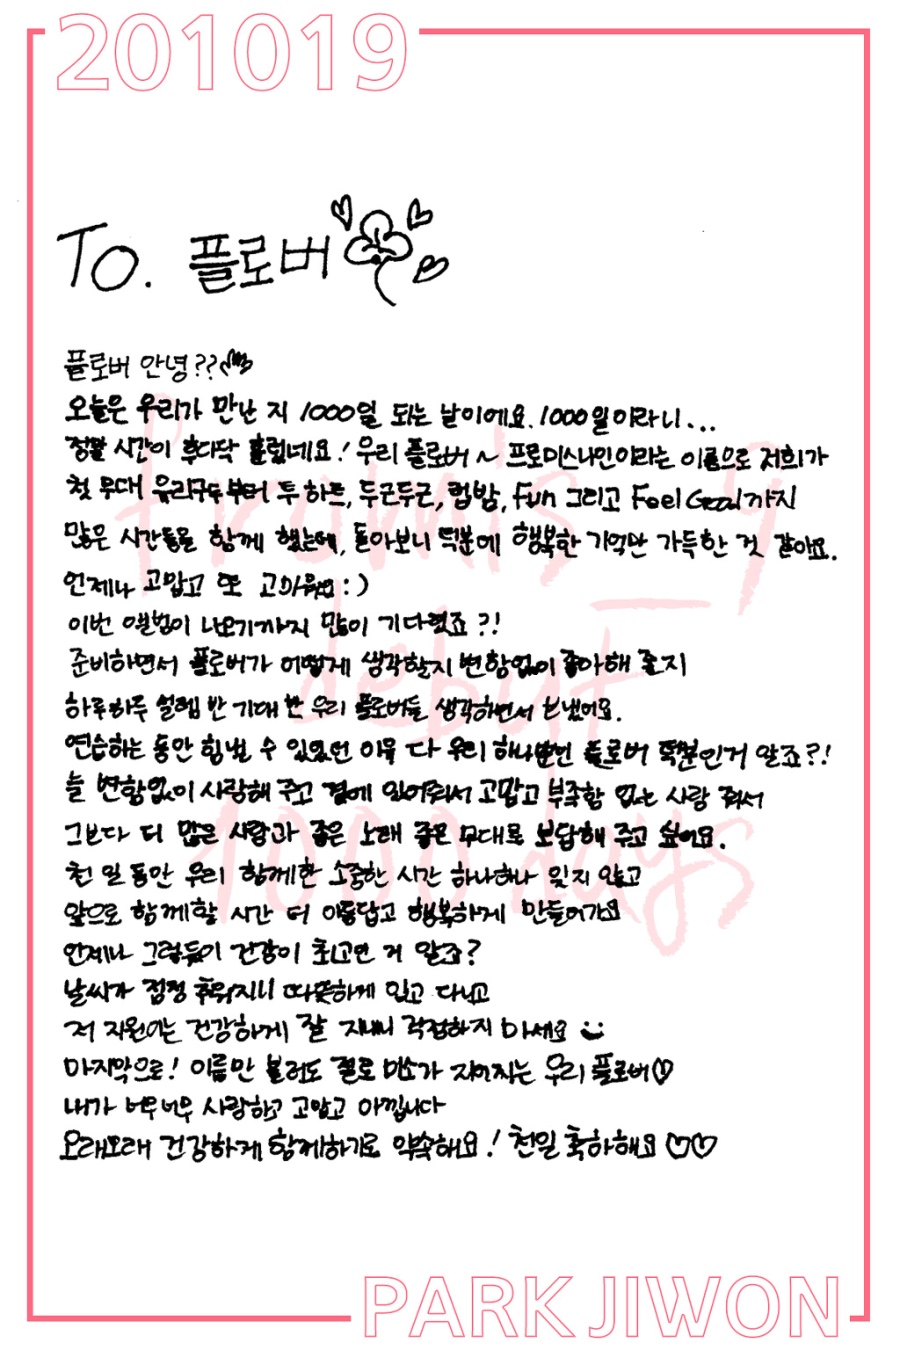 201019
To. 플로버
플로버 안녕??
오늘은 우리가 만난 지 1000일 되는 날이에요. 1000일이라니...
정말 시간이 후다닥 흘렀네요! 우리 플로버~ 프로미스나인이라는 이름으로 저희가
첫 무대 유리구두부터 투하트, 두근두근, 럽밤, Fun 그리고 Feel Good까지
많은 시간들을 함께 했는데, 돌아보니 덕분에 행복한 기억만 가득한 것 같아요.
언제나 고맙고 또 고마워요 :)
이번 앨범이 나오기까지 많이 기다렸죠?!
준비하면서 플로버가 어떻게 생각할지 변함없이 좋아해 줄지
하루하루 설렘 반 기대 반 우리 플로버들 생각하면서 보냈어요.
연습하는 동안 힘낼 수 있었던 이유 다 우리 하나뿐인 플로버 덕분인거 알죠?!
늘 변함없이 사랑해 주고 곁에 있어줘서 고맙고 부족함 없는 사랑 줘서
그보다 더 많은 사랑과 좋은 노래 좋은 무대로 보답해 주고 싶어요.
천 일 동안 우리 함께한 소중한 시간 하나하나 잊지 않고
앞으로 함께할 시간 더 아름답고 행복하게 만들어가요
언제나 그렇듯이 건강이 최고인 거 알죠?
날씨가 점점 추워지니 따뜻하게 입고 다니고
저 지원이는 건강하게 잘 지내니 걱정하지 마세요
마지막으로! 이름만 불러도 절로 미소가 지어지는 우리 플로버♡
내가 너무너무 사랑하고 고맙고 아낍니다
오래오래 건강하게 함께하기로 약속해요! 천일 축하해요 ♡♡
fromis_9
debut
1000 days
PARK JIWON